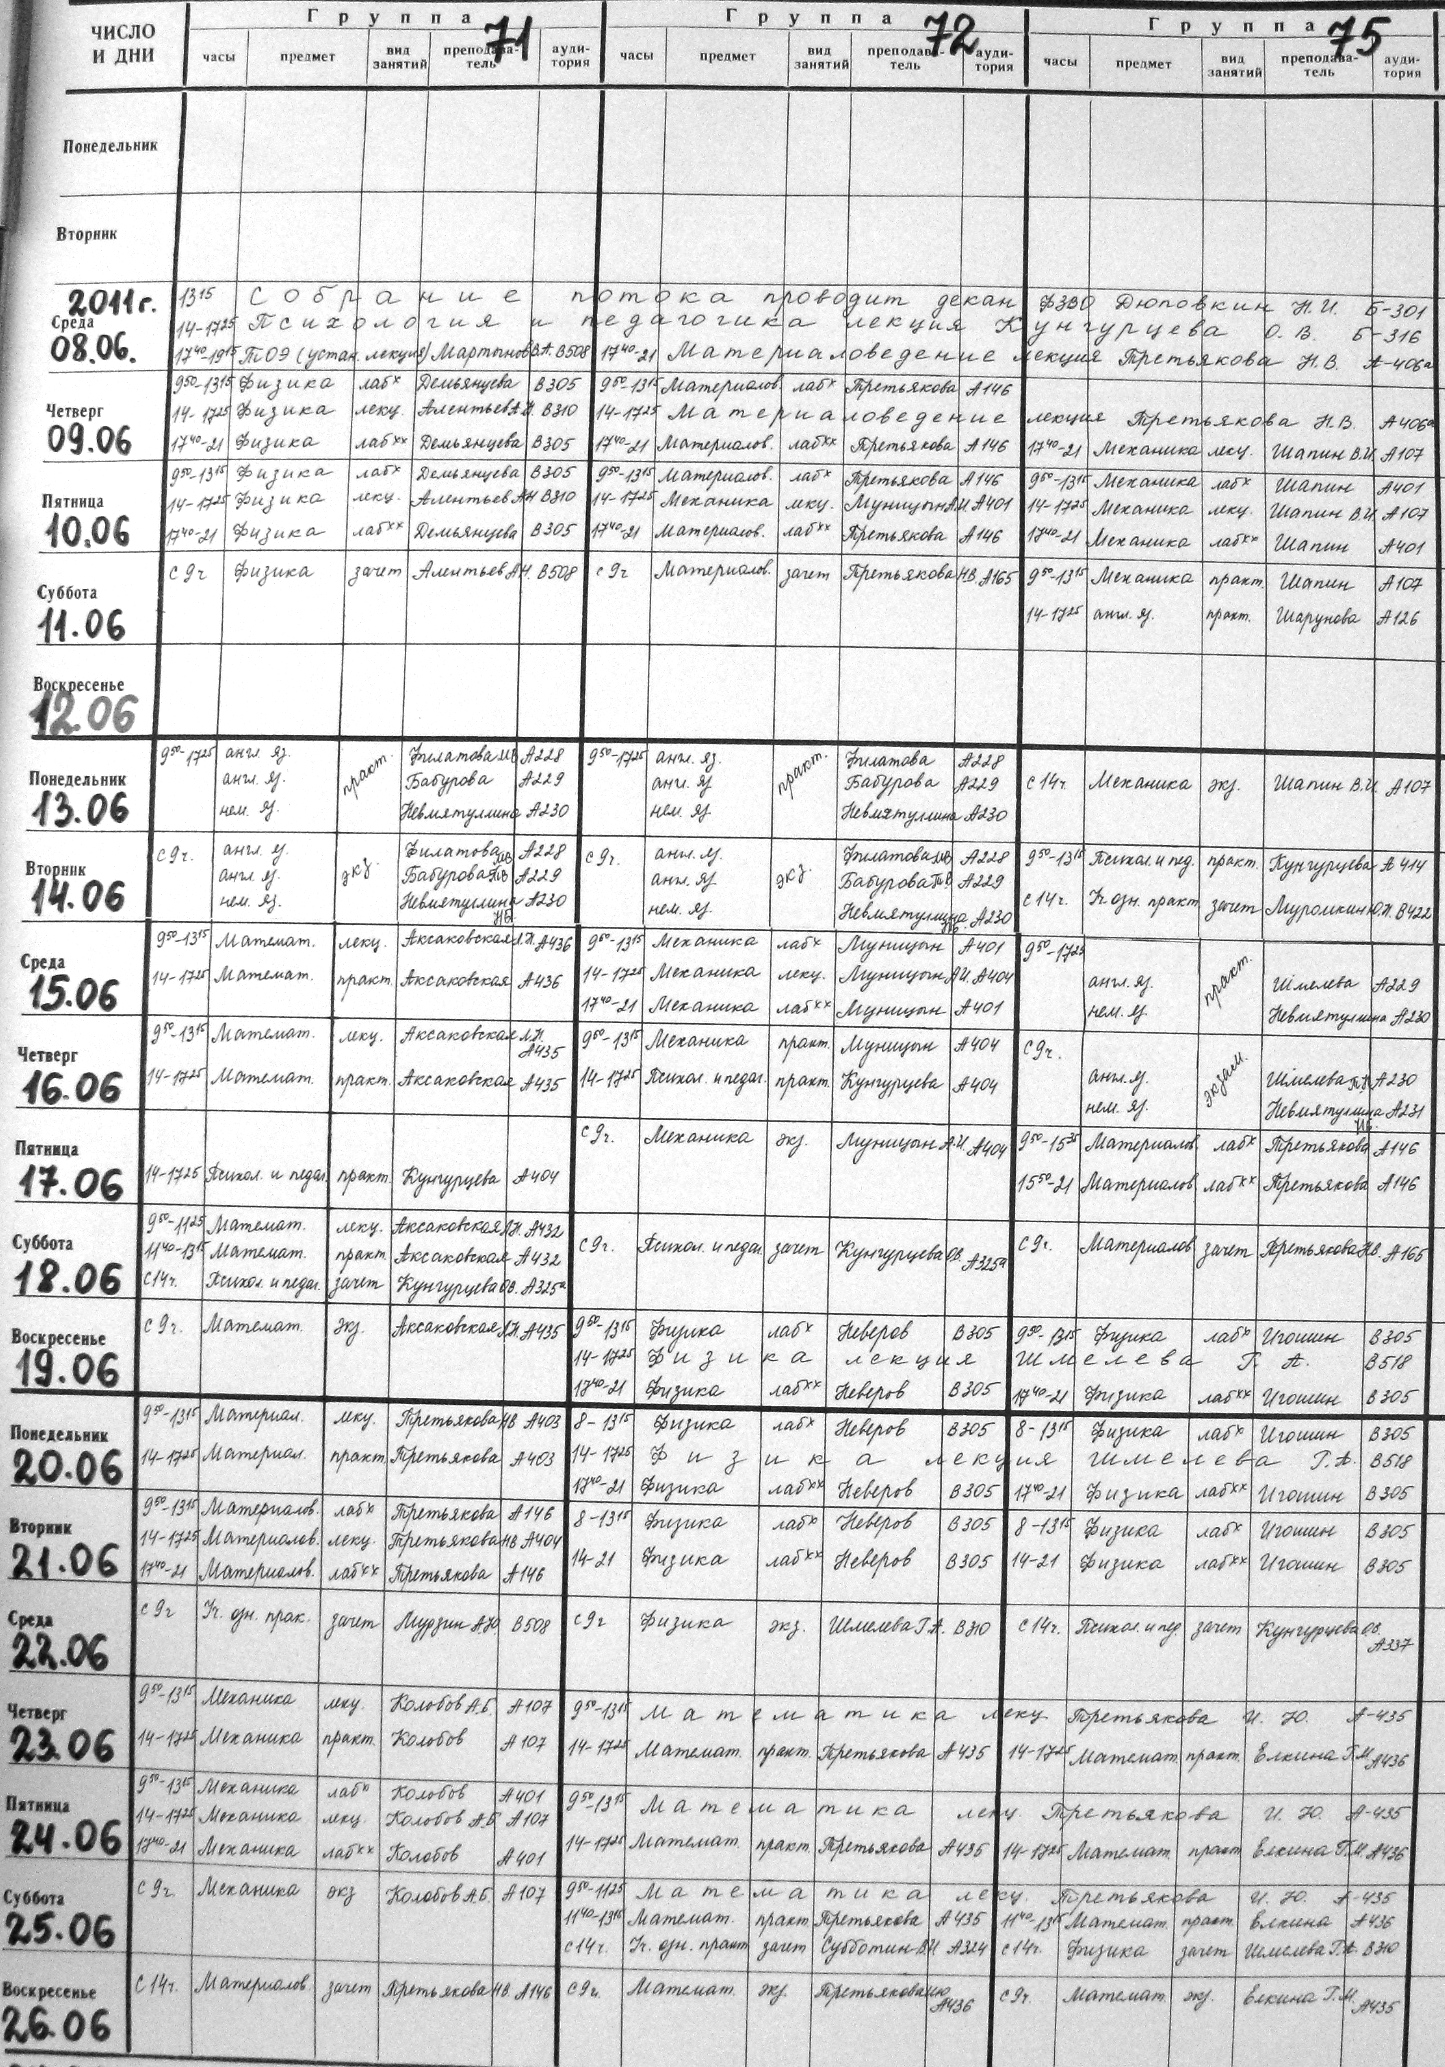 ЧИСЛО И ДНИ
Группа 71 Группа 72 Группа 75
часы предмет вид занятий преподаватель аудитория часы предмет вид занятий преподаватель аудитория часы предмет вид занятий преподаватель аудитория
Понедельник
Вторник
2011г. Среда 08.06.
13¹⁵ Собрание потока проводит декан ФЗВО Дюповкин Н.И. Б-301
14-17²⁵ Психология и педагогика лекция Кунгурцева О.В. Б-316
17⁴⁰-19¹⁵ ТОЭ (устан. лекция) Мартынов В.А. В508 17⁴⁰-21 Материаловедение лекция Третьякова Н.В. А-406а
Четверг 09.06
9⁵⁰-13¹⁵ Физика лабх Демьянцева В305 9⁵⁰-13¹⁵ Материалов. лабх Третьякова А146
14-17²⁵ Физика лекц. Алентьев А.Н. В310 14-17²⁵ Материаловедение лекция Третьякова Н.В. А406а
17⁴⁰-21 Физика лабхх Демьянцева В305 17⁴⁰-21 Материалов. лабхх Третьякова А146 17⁴⁰-21 Механика лекц. Шапин В.И. А107
Пятница 10.06
9⁵⁰-13¹⁵ Физика лабх Демьянцева В305 9⁵⁰-13¹⁵ Материалов. лабх Третьякова А146 9⁵⁰-13¹⁵ Механика лабх Шапин А401
14-17²⁵ Физика лекц. Алентьев А.Н. В310 14-17²⁵ Механика лекц. Муницын А.И. А401 14-17²⁵ Механика лекц. Шапин В.И. А107
17⁴⁰-21 Физика лабхх Демьянцева В305 17⁴⁰-21 Материалов. лабхх Третьякова А146 17⁴⁰-21 Механика лабхх Шапин А401
Суббота 11.06
с 9ч Физика зачет Алентьев А.Н. В508 с 9ч Материалов. зачет Третьякова Н.В. А165 9⁵⁰-13¹⁵ Механика практ. Шапин А107
14-17²⁵ англ. яз. практ. Шарунова А126
Воскресенье 12.06
Понедельник 13.06
9⁵⁰-17²⁵ англ. яз. практ. Филатова А228 9⁵⁰-17²⁵ англ. яз. практ. Филатова А228
англ. яз. Бабурова А229 англ. яз Бабурова А229 с 14ч. Механика экз. Шапин В.И. А107
нем. яз. Невмятуллина А230 нем. яз Невмятуллина А230
Вторник 14.06
с 9ч. англ. яз. экз. Филатова А228 с 9ч. англ. яз. экз. Филатова А228 9⁵⁰-13¹⁵ Психол. и пед. практ. Кунгурцева А414
англ. яз. Бабурова А229 англ. яз Бабурова А229
нем. яз. Невмятуллина А230 нем. яз. Невмятуллина А230 с 14ч. Уч. озн. практ. зачет Муромкин Ю.Н. В422
Среда 15.06
9⁵⁰-13¹⁵ Математ. лекц. Аксаковская Л.Н. А436 9⁵⁰-13¹⁵ Механика лабх Муницын А401 9⁵⁰-17²⁵
14-17²⁵ Математ. практ. Аксаковская А436 14-17²⁵ Механика лекц. Муницын А.И. А404 англ. яз. практ. Шмелева А229
17⁴⁰-21 Механика лабхх Муницын А401 нем. яз. Невмятуллина А230
Четверг 16.06
9⁵⁰-13¹⁵ Математ. лекц. Аксаковская Л.Н. А435 9⁵⁰-13¹⁵ Механика практ. Муницын А404 с 9ч.
14-17²⁵ Математ. практ. Аксаковская А435 14-17²⁵ Психол. и педаг. практ. Кунгурцева А404 англ. яз. экзам. Шмелева А230
нем. яз. Невмятуллина А231
Пятница 17.06
с 9ч. Механика экз. Муницын А.И. А404 9⁵⁰-15³⁵ Материалов. лабх Третьякова А146
14-17²⁵ Психол. и педаг. практ. Кунгурцева А404 15⁵⁰-21 Материалов. лабхх Третьякова А146
Суббота 18.06
9⁵⁰-11²⁵ Математ. лекц. Аксаковская Л.Н. А432
11⁴⁰-13¹⁵ Математ. практ. Аксаковская А432 с 9ч. Психол. и педаг. зачет Кунгурцева О.В. А325а с 9ч. Материалов. зачет Третьякова Н.В. А165
с 14ч. Психол. и педаг. зачет Кунгурцева О.В. А325а
Воскресенье 19.06
с 9ч. Математ. экз. Аксаковская Л.Н. А435 9⁵⁰-13¹⁵ Физика лабх Неверов В305 9⁵⁰-13¹⁵ Физика лабх Игошин В305
14-17²⁵ Физика лекция Шмелева Г.А. В518
17⁴⁰-21 Физика лабхх Неверов В305 17⁴⁰-21 Физика лабхх Игошин В305
Понедельник 20.06
9⁵⁰-13¹⁵ Материал. лекц. Третьякова НВ А403 8-13¹⁵ Физика лабх Неверов В305 8-13¹⁵ Физика лабх Игошин В305
14-17²⁵ Материал. практ. Третьякова А403 14-17²⁵ Физика лекция Шмелева Г.А. В518
17⁴⁰-21 Физика лабхх Неверов В305 17⁴⁰-21 Физика лабхх Игошин В305
Вторник 21.06
9⁵⁰-13¹⁵ Материалов. лабх Третьякова А146 8-13¹⁵ Физика лабх Неверов В305 8-13¹⁵ Физика лабх Игошин В305
14-17²⁵ Материалов. лекц. Третьякова НВ А404 14-21 Физика лабхх Неверов В305 14-21 Физика лабхх Игошин В305
17⁴⁰-21 Материалов. лабхх Третьякова А146
Среда 22.06
с 9ч Уч. озн. прак. зачет Мурзин А.Ю. В508 с 9ч Физика экз. Шмелева Г.А. В310 с 14ч. Психол. и пед зачет Кунгурцева О.В. А337
Четверг 23.06
9⁵⁰-13¹⁵ Механика лекц. Колобов А.Б. А107 9⁵⁰-13¹⁵ Математика лекц. Третьякова И.Ю. А-435
14-17²⁵ Механика практ. Колобов А107 14-17²⁵ Математ. практ. Третьякова А435 14-17²⁵ Математ. практ. Елкина Г.М. А436
Пятница 24.06
9⁵⁰-13¹⁵ Механика лабх Колобов А401 9⁵⁰-13¹⁵ Математика лекц. Третьякова И.Ю. А-435
14-17²⁵ Механика лекц. Колобов А.Б А107
17⁴⁰-21 Механика лабхх Колобов А401 14-17²⁵ Математ. практ. Третьякова А435 14-17²⁵ Математ. практ Елкина Г.М. А436
Суббота 25.06
с 9ч Механика экз Колобов А.Б А107 9⁵⁰-11²⁵ Математика лекц. Третьякова И.Ю. А-435
11⁴⁰-13¹⁵ Математ. практ. Третьякова А435 11⁴⁰-13¹⁵ Математ. практ. Елкина А436
с 14ч. Уч. озн. практ зачет Субботин В.И А324 с 14ч. Физика зачет Шмелева Г.А. В310
Воскресенье 26.06
с 14ч. Материалов. зачет Третьякова НВ. А146 с 9ч. Математ. экз. Третьякова ИЮ А436 с 9ч. Математ. экз. Елкина Г.М. А435